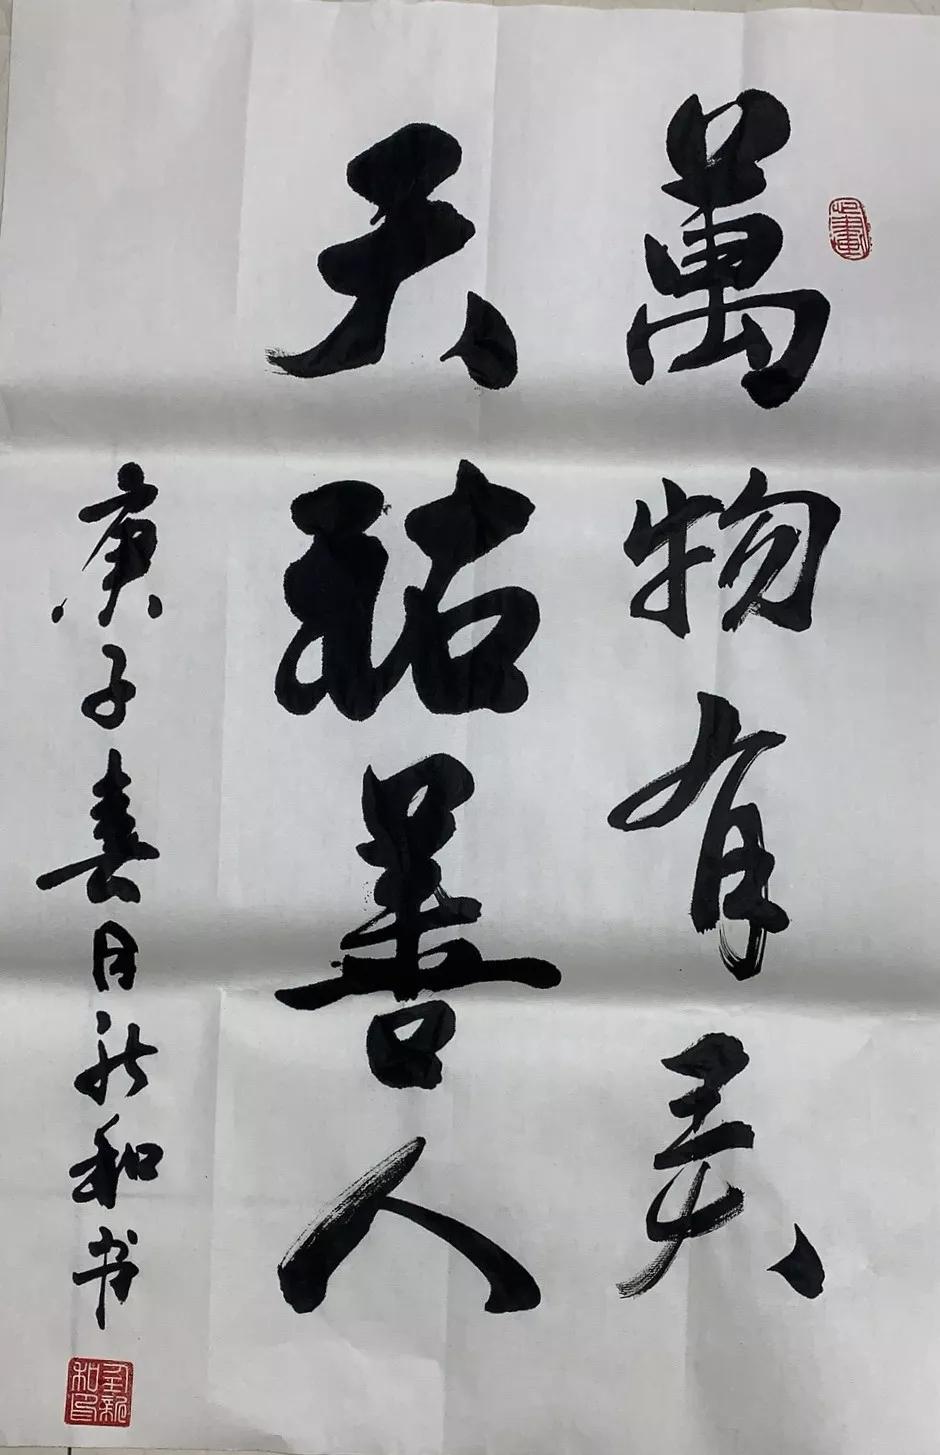 萬物有灵
天祐善人
庚子春月新和书